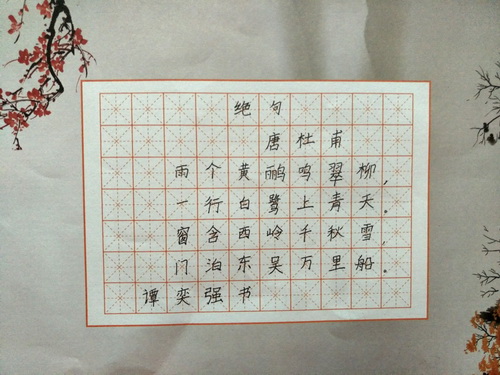 绝句
唐杜甫
雨个黄鹂鸣翠柳，
一行白鹭上青天。
窗含西岭千秋雪，
门泊东吴万里船。
谭奕强书